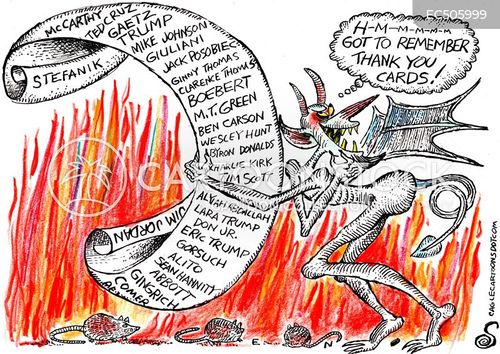 EC505999
H-M-M-M-M-M
GOT TO REMEMBER
THANK YOU
CARDS!
STEFANIK
MCCARTHY
TED CRUZ
GAETZ
TRUMP
MIKE JOHNSON
GIULIANI
JACK POSOBIEC
GINNY THOMAS
CLARENCE THOMAS
BOEBERT
M.T. GREEN
BEN CARSON
WESLEY HUNT
BYRON DONALDS
CHARLIE KIRK
TIM SCOTT
ALVAH
LARA TRUMP
DON JR.
ERIC TRUMP
GORSUCH
ALITO
SEAN HANNITY
ABBOTT
GINGRICH
COMER
JIM JORDAN
CARTOONSTOCK
EAGLECARTOONSDOTCOM